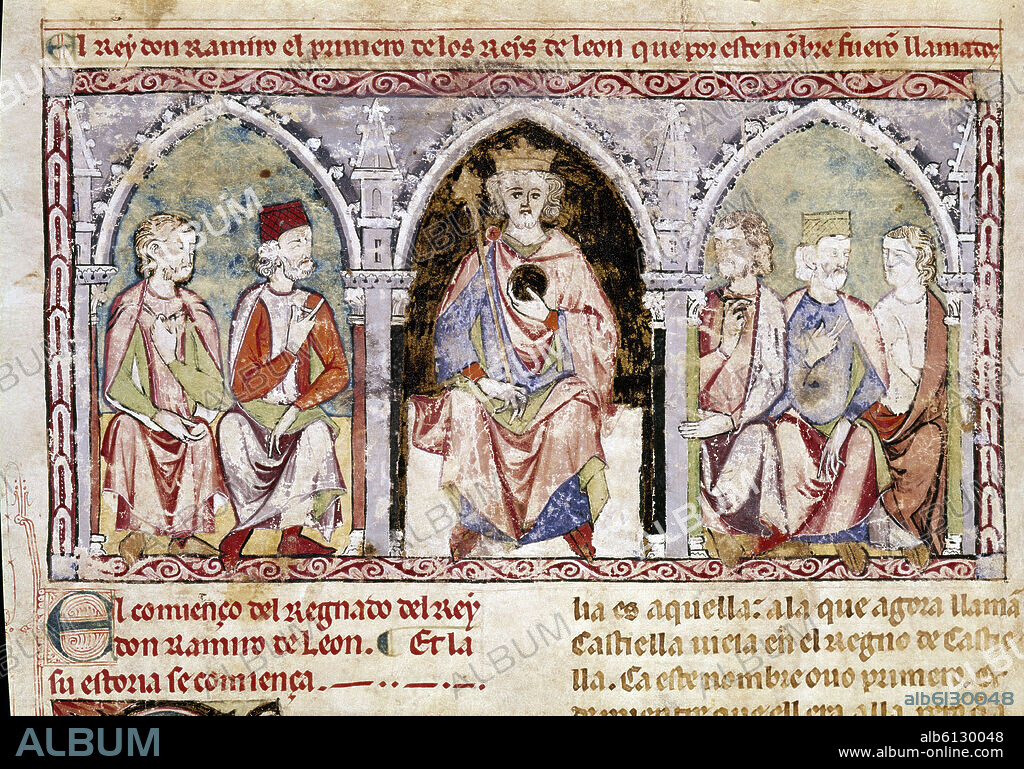 El Rey don Ramiro el primero de los Reis de leon que por este nõbre fuerõ llamados
El comienço del Regnado del Rey
don Ramiro de Leon. Et la
su estoria se comiença.
lia es aquella: a la que agora llamã
Castiella uieia en el Regno de Castie
lla. Ca este nombre ouo primero. Et
alb6130048
ALBUM
alb6130048
www.album-online.com